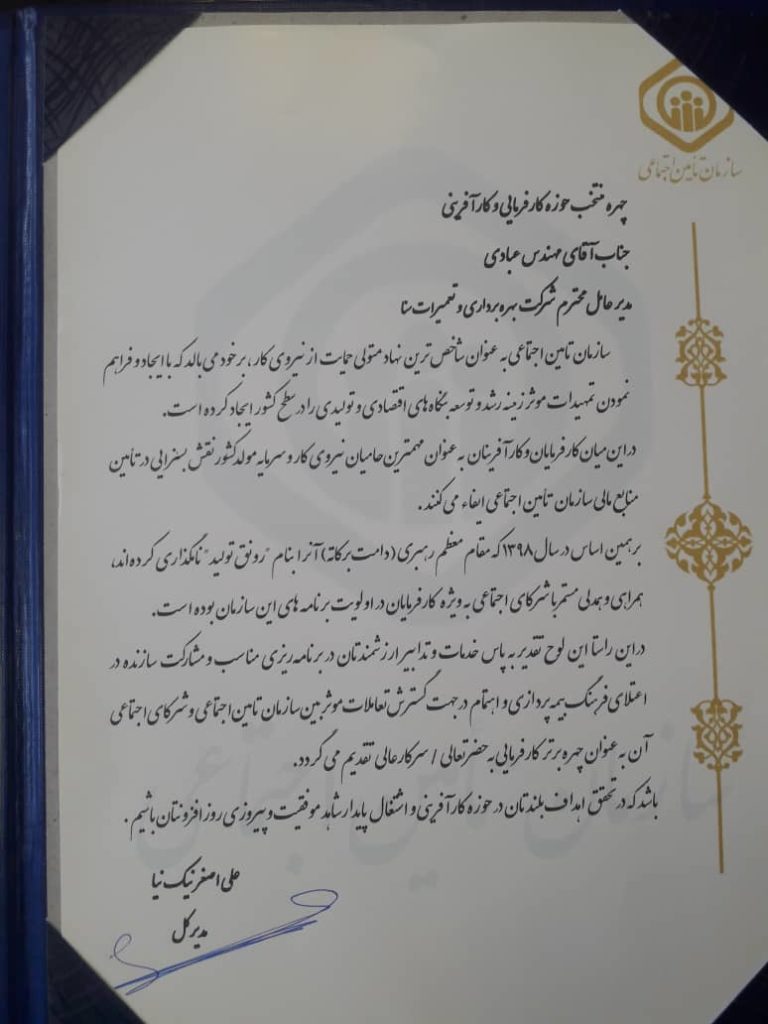 سازمان تأمین اجتماعی
چهره منتخب حوزه کارفرمایی و کارآفرینی
جناب آقای مهندس عبادی
مدیر عامل محترم شرکت بهره برداری و تعمیرات سنا
سازمان تامین اجتماعی به عنوان شاخص ترین نهاد متولی حمایت از نیروی کار، بر خود می بالد که با ایجاد و فراهم
نمودن تمهیدات موثر زمینه رشد و توسعه بنگاه های اقتصادی و تولیدی را در سطح کشور ایجاد کرده است.
در این میان کارفرمایان و کارآفرینان به عنوان مهمترین حامیان نیروی کار و سرمایه مولد کشور نقش بسزایی در تأمین
منابع مالی سازمان تامین اجتماعی ایفاء می کنند.
بر همین اساس در سال ۱۳۹۸ که مقام معظم رهبری (دامت برکاته) آنرا بنام "رونق تولید" نامگذاری کرده اند،
همراهی و همدلی مستمر با شرکای اجتماعی به ویژه کارفرمایان در اولویت برنامه های این سازمان بوده است.
در این راستا این لوح تقدیر به پاس خدمات و تدابیر ارزشمندتان در برنامه ریزی مناسب و مشارکت سازنده در
اعتلای فرهنگ بیمه پردازی و اهتمام در جهت گسترش تعاملات موثر بین سازمان تامین اجتماعی و شرکای اجتماعی
آن به عنوان چهره برتر کارفرمایی به حضرتعالی / سرکار عالی تقدیم می گردد.
باشد که در تحقق اهداف بلندتان در حوزه کارآفرینی و اشتغال پایدار شاهد موفقیت و پیروزی روز افزونتان باشیم.
علی اصغر نیک نیا
مدیر کل
سازمان تامین اجتماعی